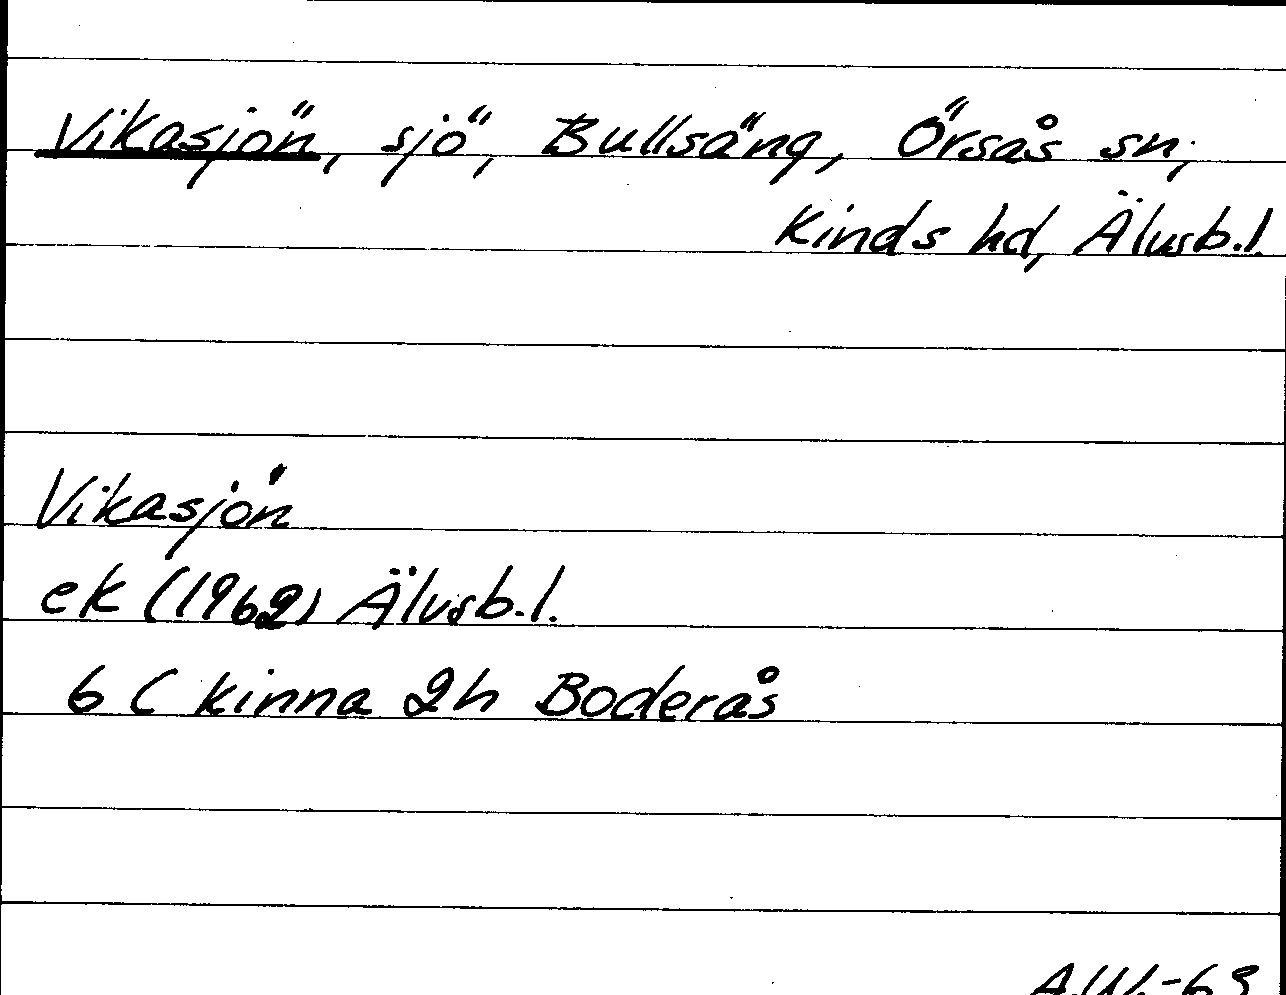 Vikasjön, sjö, Bullsäng, Örsås sn,
Kinds hd, Älvsb.l.
Vikasjön
ek (1962) Älvsb.l.
6 C Kinna 2h Boderås
A.W.-63